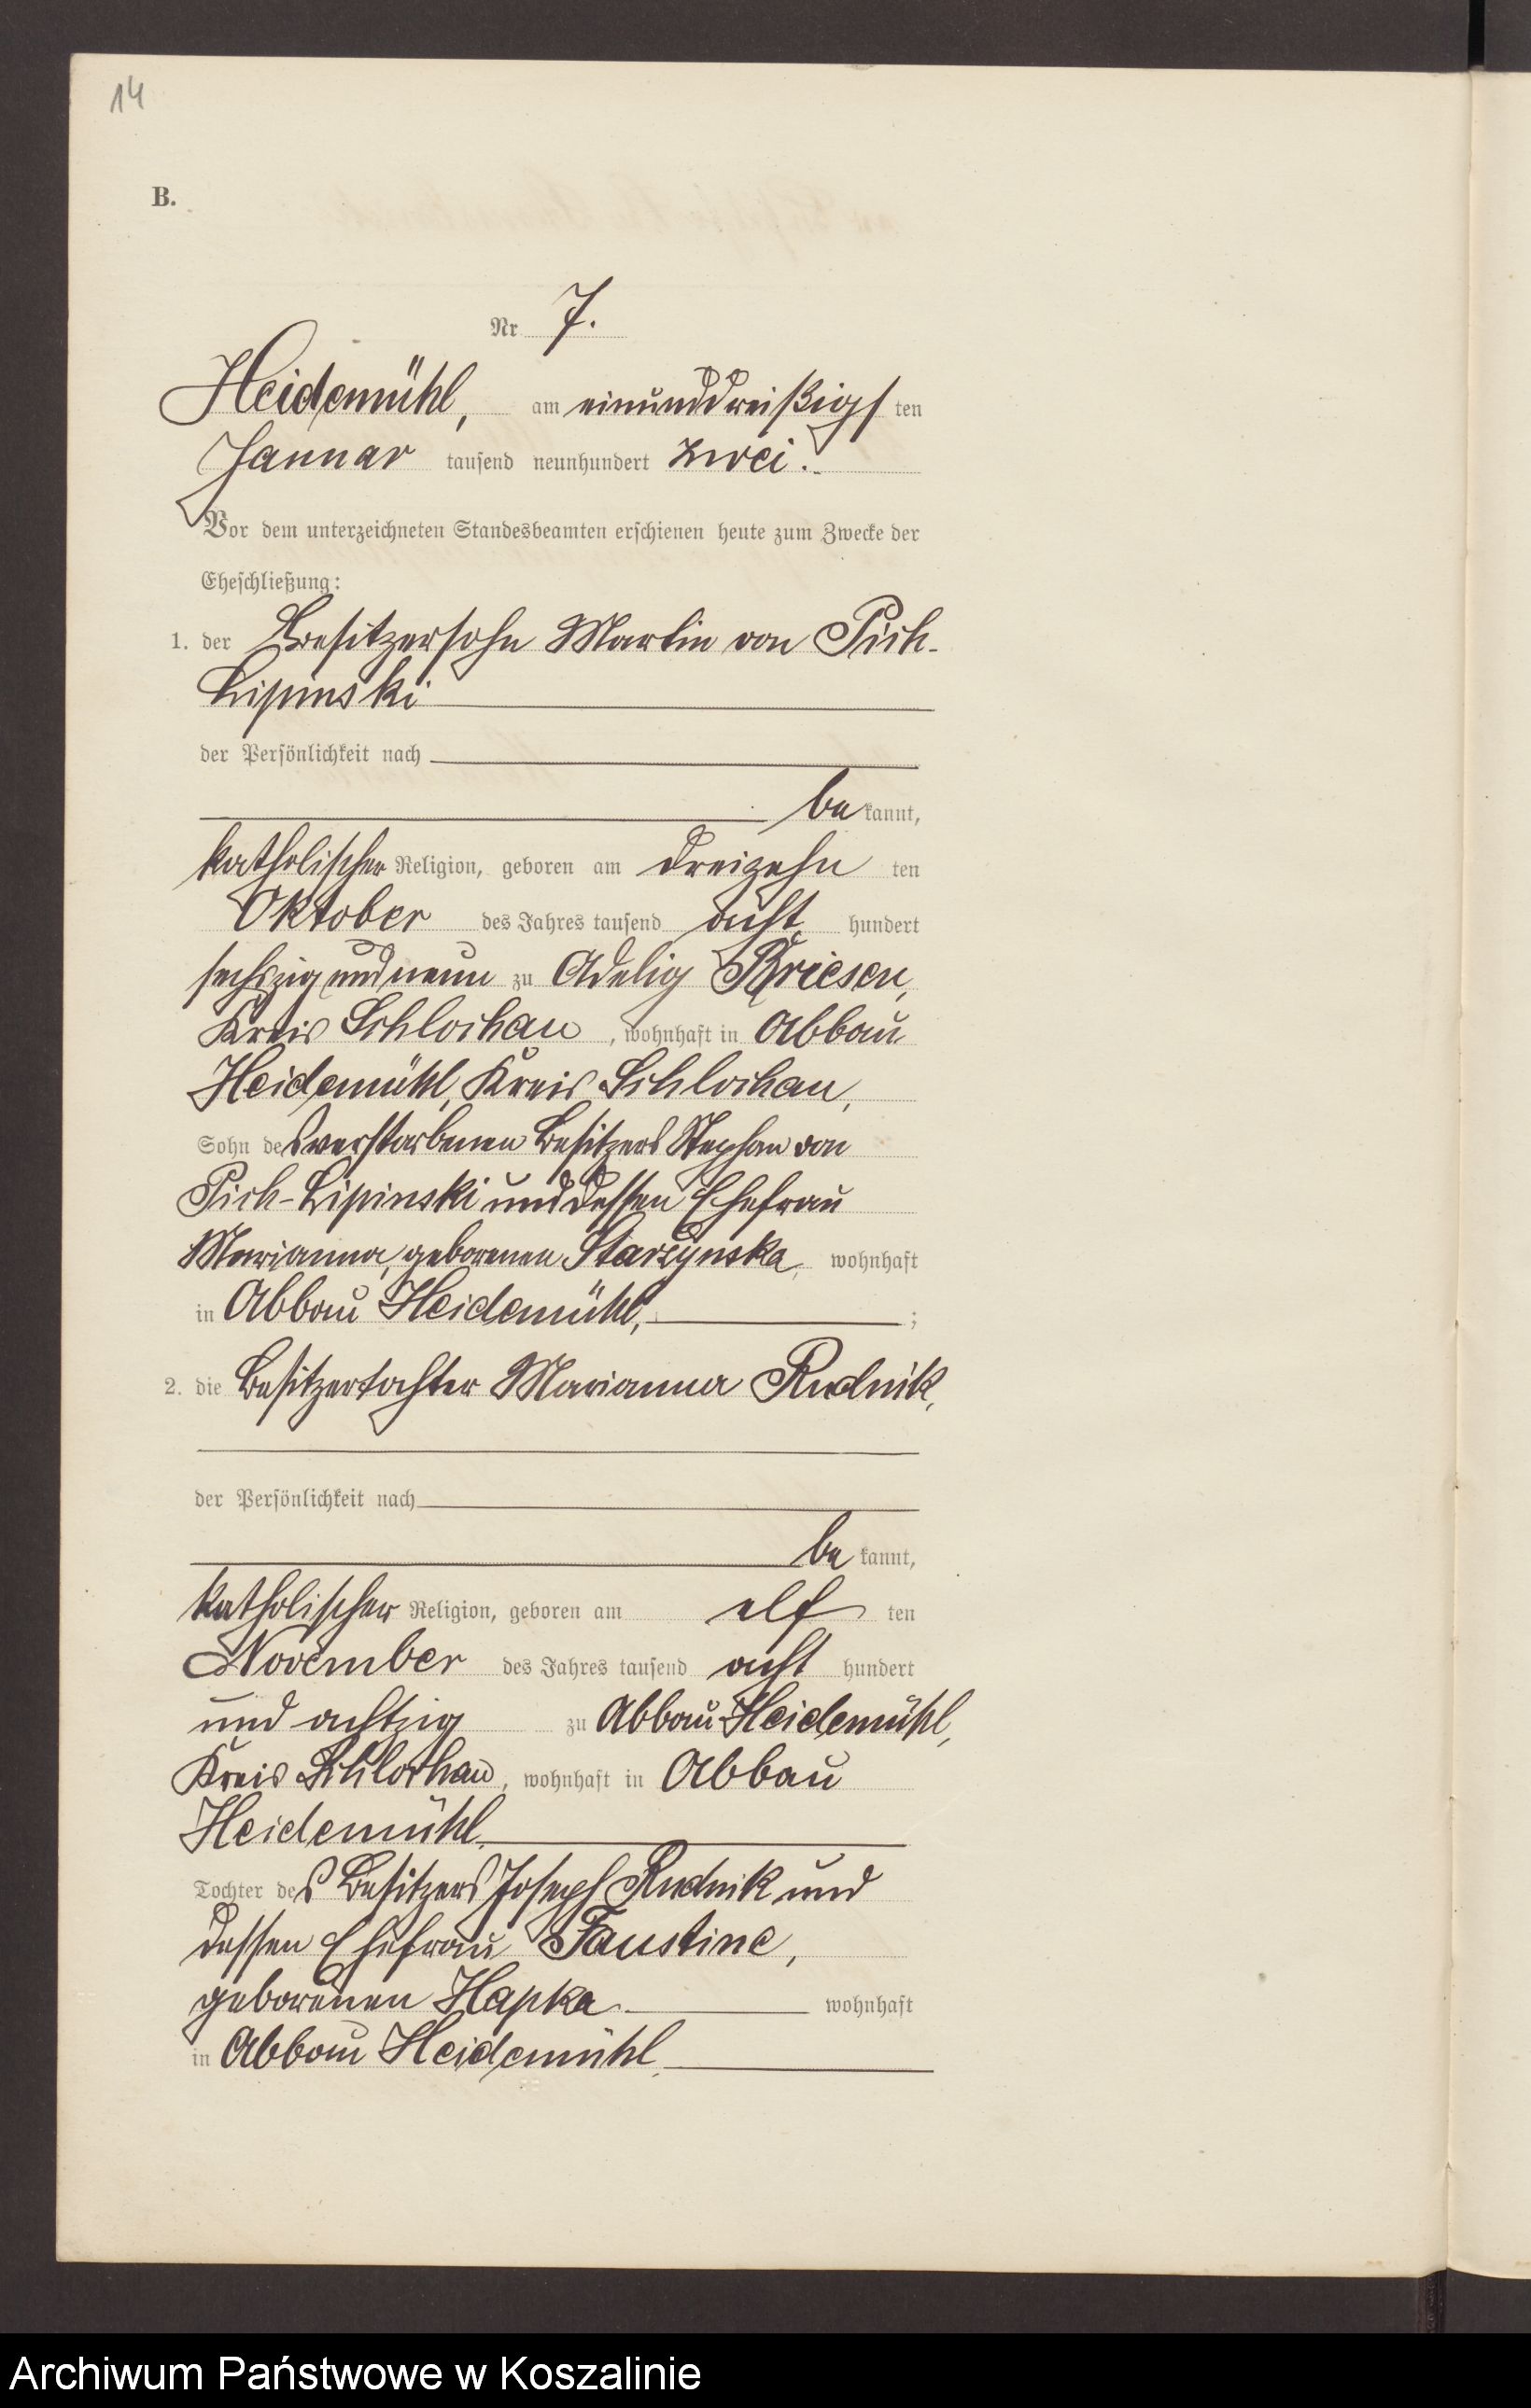 14
B.
Nr 7.
Heidemühl, am einunddreißigsten
Januar tausend neunhundert zwei.
Vor dem unterzeichneten Standesbeamten erschienen heute zum Zwecke der
Eheschließung:
1. der Besitzersohn Martin von Pich-
Lipinski
der Persönlichkeit nach
be kannt,
katholischer Religion, geboren am dreizehn ten
Oktober des Jahres tausend acht hundert
sechszig und neun zu Adelig Briesen,
Kreis Schlochau, wohnhaft in Abbau
Heidemühl, Kreis Schlochau,
Sohn des verstorbenen Besitzers Stephan von
Pich-Lipinski und dessen Ehefrau
Marianna, geborenen Starzynska, wohnhaft
in Abbau Heidemühl, ;
2. die Besitzertochter Marianna Rudnik,
der Persönlichkeit nach
be kannt,
katholischer Religion, geboren am elf ten
November des Jahres tausend acht hundert
und achtzig zu Abbau Heidemühl,
Kreis Schlochau, wohnhaft in Abbau
Heidemühl.
Tochter des Besitzers Joseph Rudnik und
dessen Ehefrau Faustine,
geborenen Hapka. wohnhaft
in Abbau Heidemühl.
Archiwum Państwowe w Koszalinie